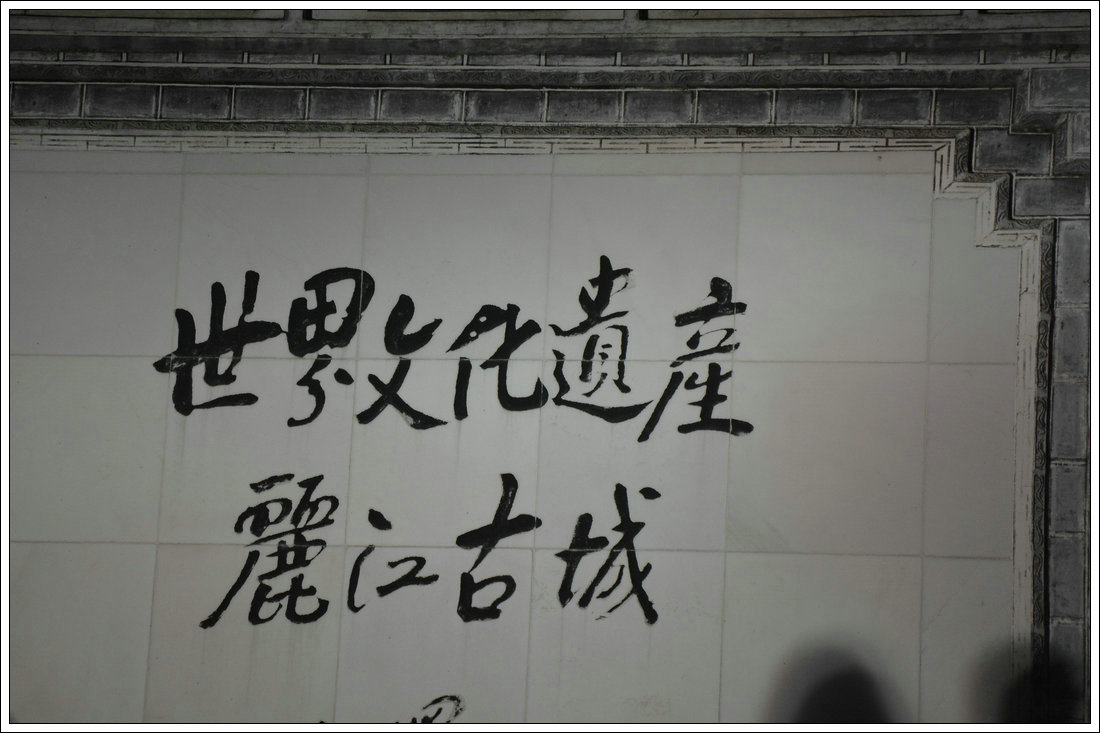 世界文化遺產
麗江古城